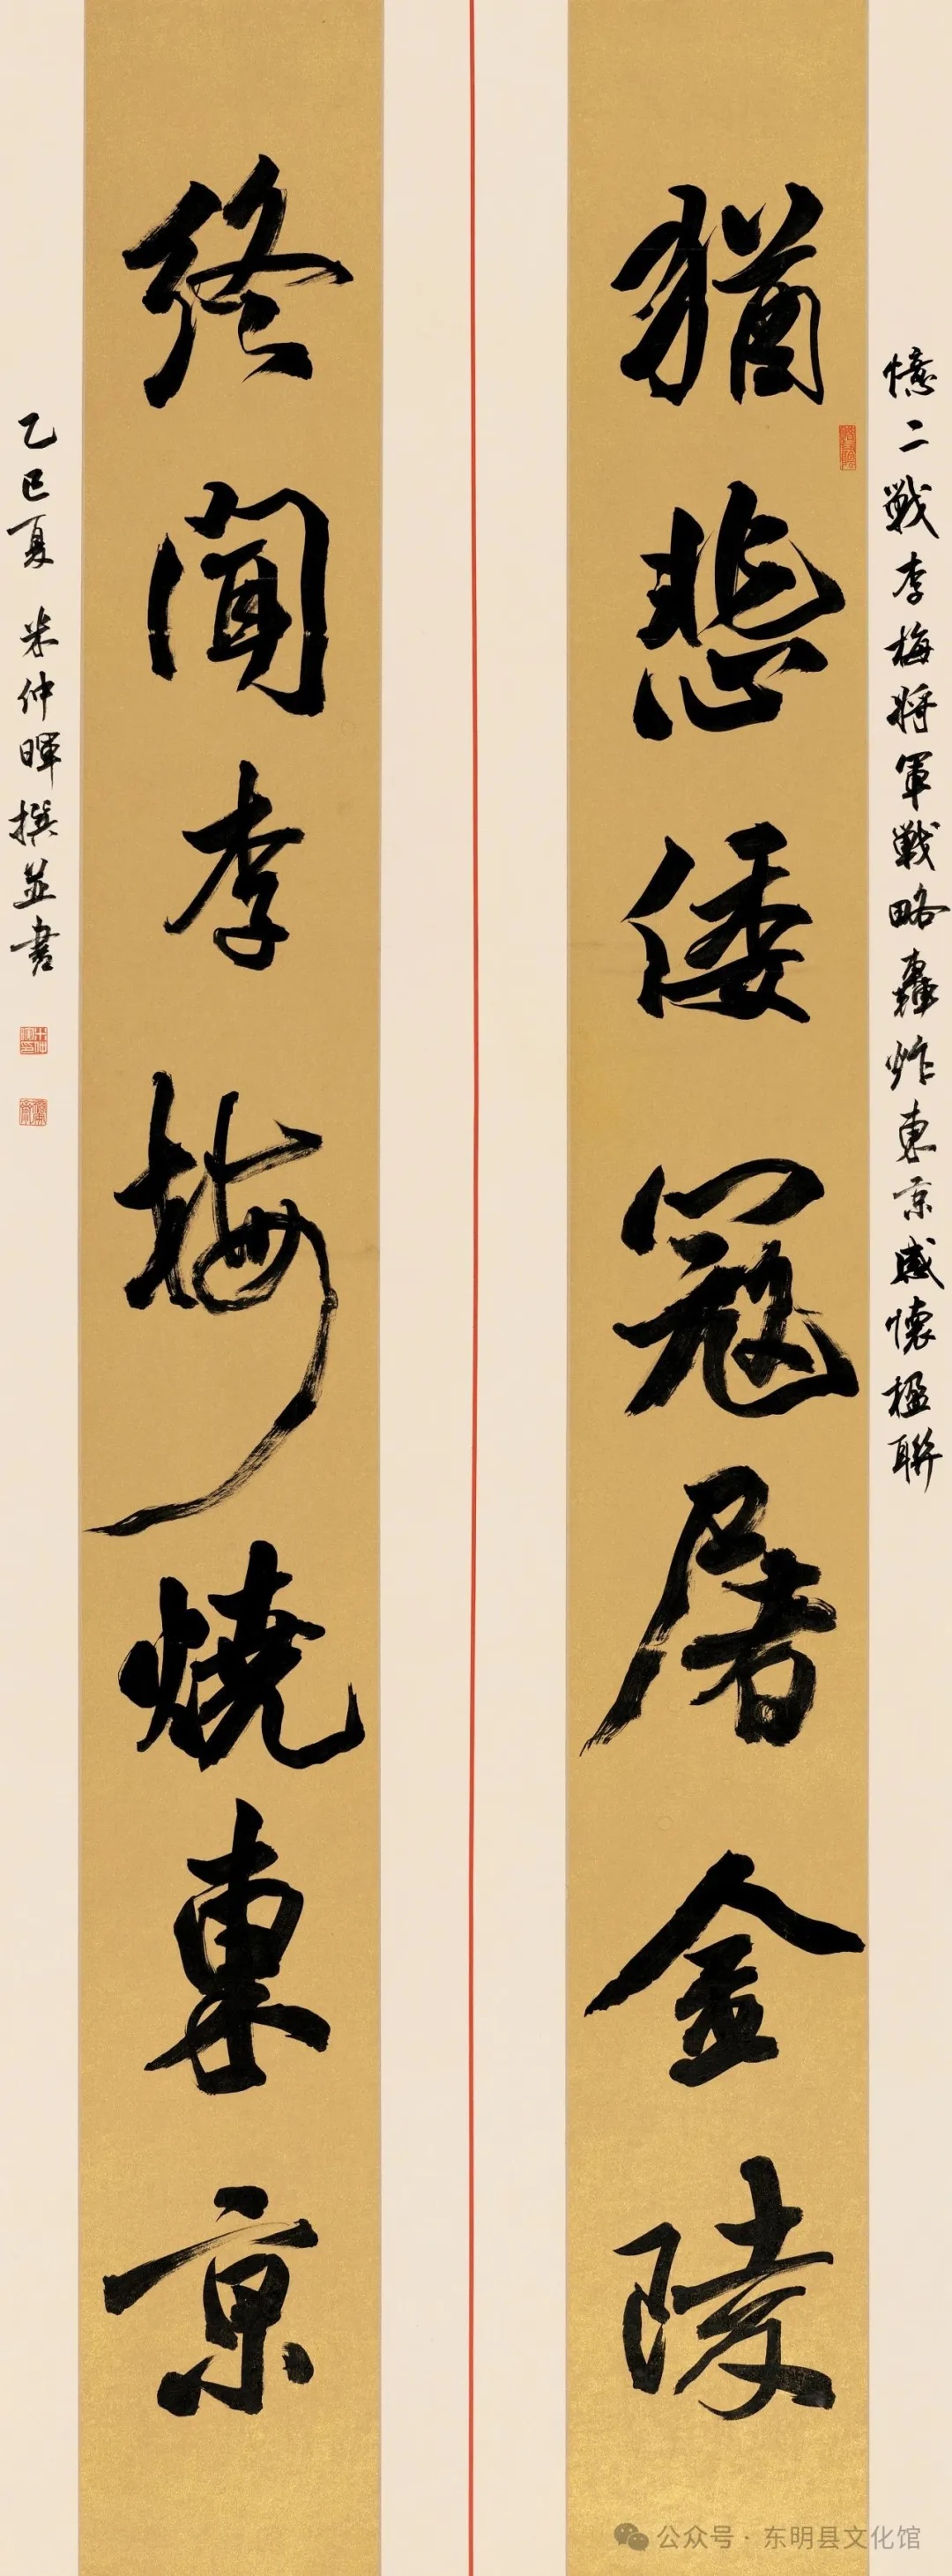 憶二戰李梅將軍戰略轟炸東京感懷楹聯
猶悲倭寇屠金陵
終聞李梅燒東京
乙巳夏 米仲暉撰並書
公众号·东明县文化馆